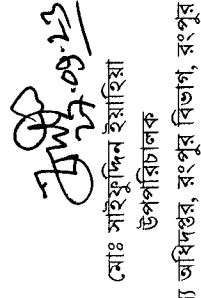 মোঃ সাইফুদ্দিন ইয়াহিয়া
উপপরিচালক
অধিদপ্তর, রংপুর বিভাগ, রংপুর